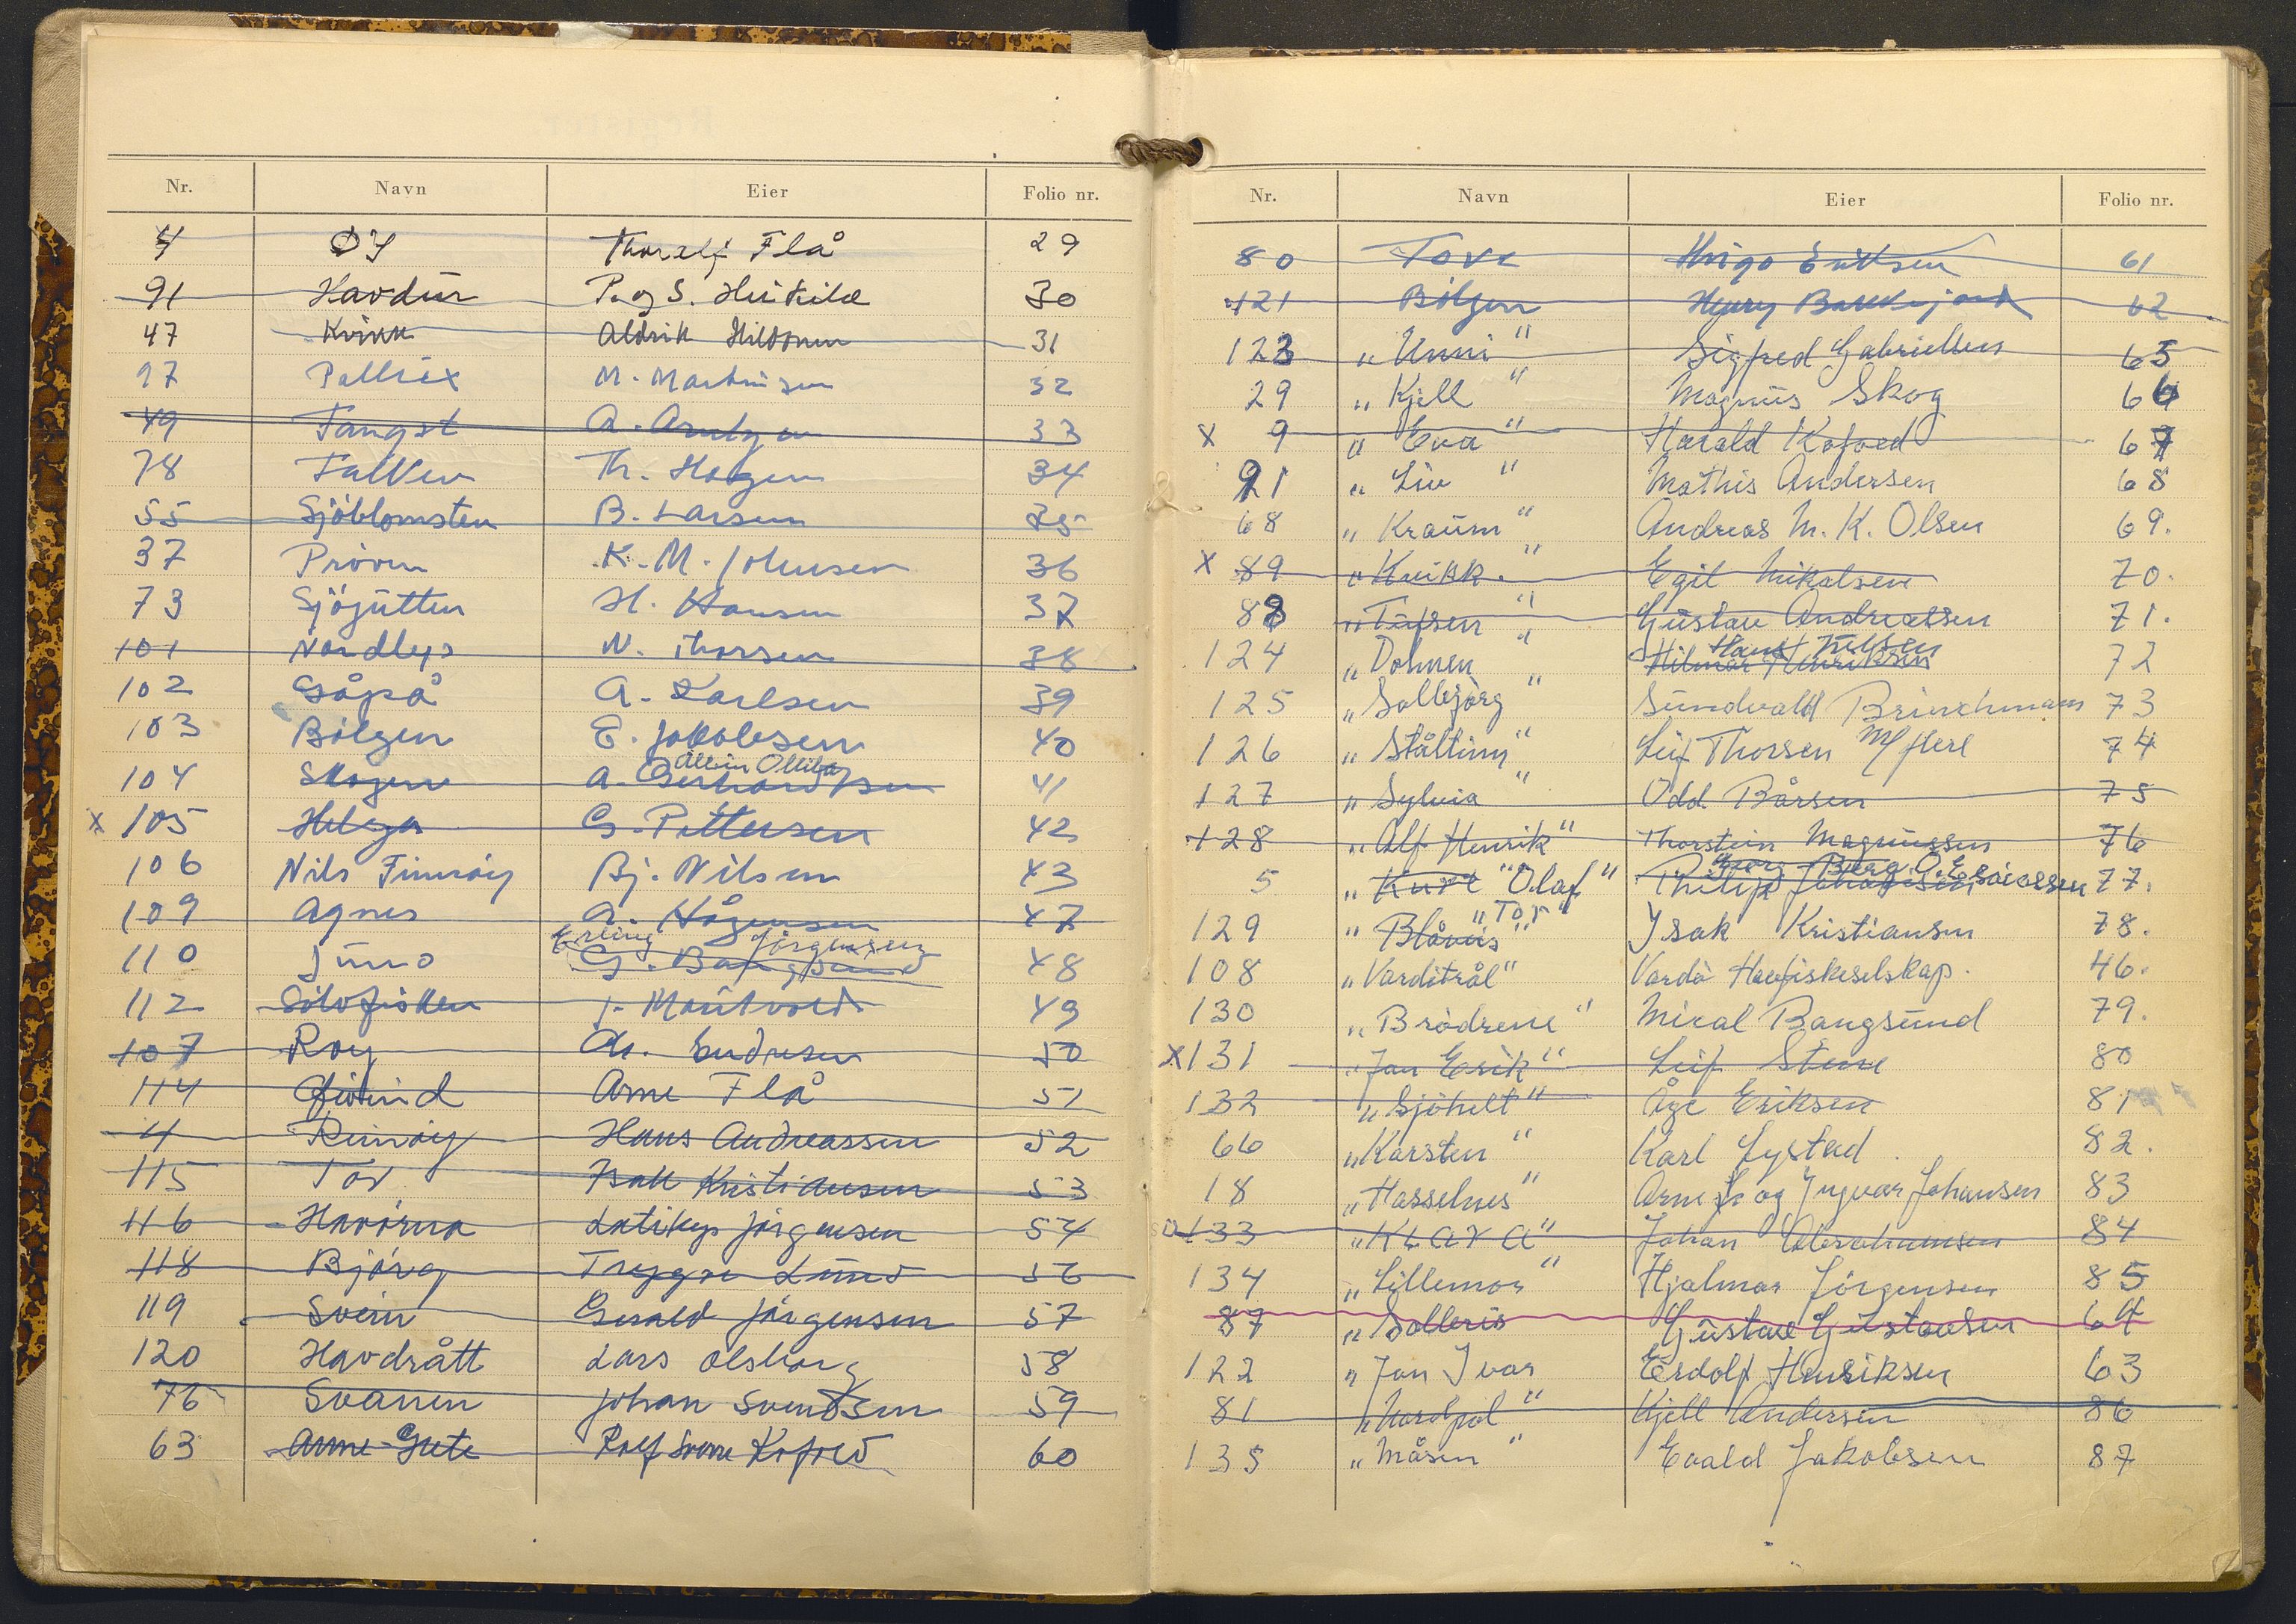 Nr. Navn Eier Folio nr.
4 ØY Thoralf Flå 29
91 Havdur P. og S. Heikilä 30
47 Kvikk Aldrik Hildonen 31
97 Pallrex M. Martinsen 32
49 Fangst A. Arntzen 33
78 Falken Th. Hagen 34
55 Sjöblomsten B. Larsen 35
37 Pröven K. M. Johnsen 36
73 Sjögutten H. Hansen 37
101 Nordlys N. Thorsen 38
102 Gåpå A. Karlsen 39
103 Bölgen E. Jakobsen 40
Albin Ollila
104 Skogen A. Gerhardsen 41
x 105 Helga G. Pettersen 42
106 Nils Finnöy Bj. Nilsen 43
109 Agnes A. Hågensen 47
Erling Jörgensen
110 Juno G. Bangsund 48
112 Sölvfisken J. Mankvold 49
107 Roy Chr. Endresen 50
114 Öivind Arne Flå 51
4 Reinöy Hans Andreassen 52
115 Tor Isak Kristiansen 53
116 Havörna Lotikys Jörgensen 54
118 Björg Trygve Lund 56
119 Svein Gerald Jörgensen 57
120 Havdrått Lars Olsborg 58
76 Svanen Johan Svendsen 59
63 Anne-Grete Rolf Sverre Kofoed 60
Nr. Navn Eier Folio nr.
80 Tove Hugo Eriksen 61
121 Bölgen Henry Bakkejord 62
123 „Unni" Sigfred Gabrielsen 65
29 „Kjell" Magnus Skog 66
x 9 „Eva" Harald Kofoed 67
91 „Liv" Mathis Andersen 68
68 „Kraum" Andreas M. K. Olsen 69.
x 89 „Kvikk." Egil Mikalsen 70.
88 „Tufsen" Gustav Andreassen 71.
Hans Nilsen
124 „Dolmen" Hilmar Henriksen 72
125 „Solbjörg" Sundvald Brinchmann 73
126 „Ståltinn" Leif Thorsen M/flere 74
127 „Sylvia" Odd Bårsen 75
128 „Alf Henrik" Thorstein Magnussen 76
Georg Berg O. E. Isaksen
5 „Kurt" "Olaf" Philip Johansen 77.
"Tor"
129 „Blåveis" Isak Kristiansen 78.
108 „Vardötrål" Vardö Havfiskeselskap. 46.
130 „Brödrene" Mikal Bangsund 79.
x 131 „Jan Erik" Leif Stene 80
132 „Sjöhelt" Åge Eriksen 81
66 „Karsten" Karl Lystad 82.
18 „Hasselnes" Arne Jr og Ingvar Johansen 83
133 „KLARA" Johan Abrahamsen 84
134 „Lillemor" Hjalmar Jörgensen 85
87 „Solleris Gustav Gustavsen 64
122 „Jan Ivar Erdolf Henriksen 63
81 „Nordpol" Kjell Andersen 86
135 „Måsen" Evald Jakobsen 87